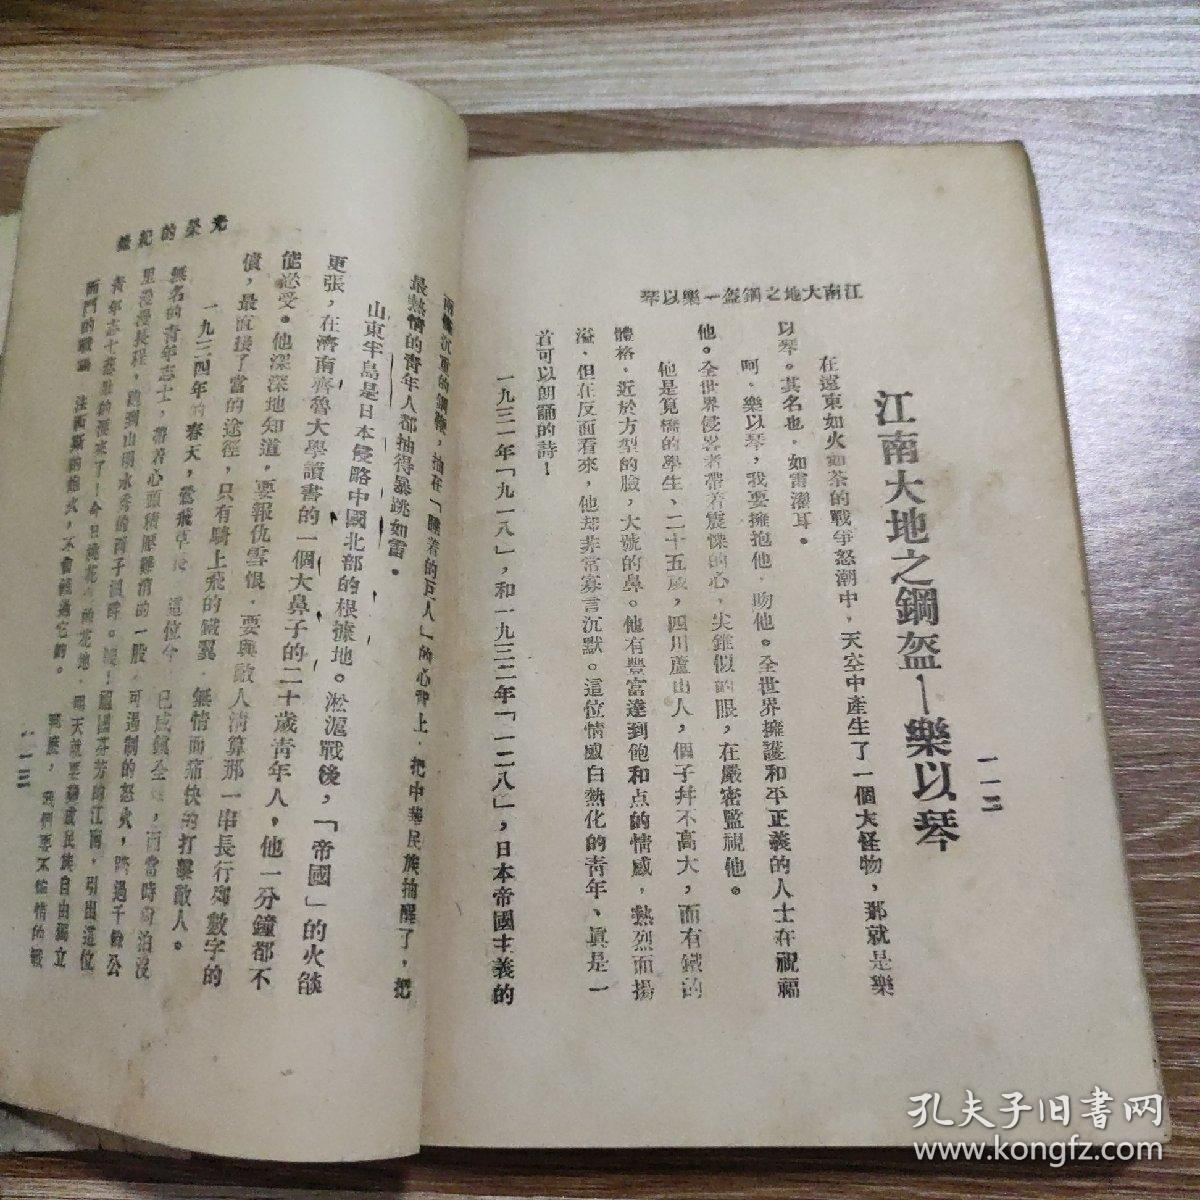 江南大地之鋼盔—樂以琴
一一二
江南大地之鋼盔—樂以琴
在遠東如火如荼的戰爭怒潮中，天空中產生了一個大怪物，那就是樂
以琴。其名也，如雷灌耳。
呵，樂以琴，我要擁抱他，吻他。全世界擁護和平正義的人士在祝福
他。全世界侵畧者帶着震慄的心，尖錐似的眼，在嚴密監視他。
他是筧橋的學生、二十五歲，四川蘆山人，個子幷不高大，而有鐵的
體格，近於方型的臉，大號的鼻。他有豐富達到飽和点的情感，熱烈而揚
溢，但在反面看來，他却非常寡言沉默。這位情感白熱化的青年、眞是一
首可以朗誦的詩！
一九三一年「九一八」，和一九三二年「一二八」，日本帝國主義的
沉重的鋼鞭，抽在「睡着的巨人」的心背上，把中華民族抽醒了，把
最熱情的靑年人都抽得暴跳如雷。
山東半島是日本侵略中國北部的根據地。淞滬戰後，「帝國」的火燄
更張，在濟南齊魯大學讀書的一個大鼻子的二十歲靑年人，他一分鐘都不
能忍受。他深深地知道，要報仇雪恨，要與敵人清算那一串長行列數字的
債，最直接了當的途徑，只有騎上飛的鐵翼，無情而痛快的打擊敵人。
一九三四年的春天，鶯飛草長，這位今已成
無名的青年志士，帶着心頭積壓難消的一股不可遏制的怒火，踏過千餘公
里漫漫長程，跑到山明水秀的西子湖畔。
一一三
光榮的紀錄
孔夫子旧書网
www.kongfz.com